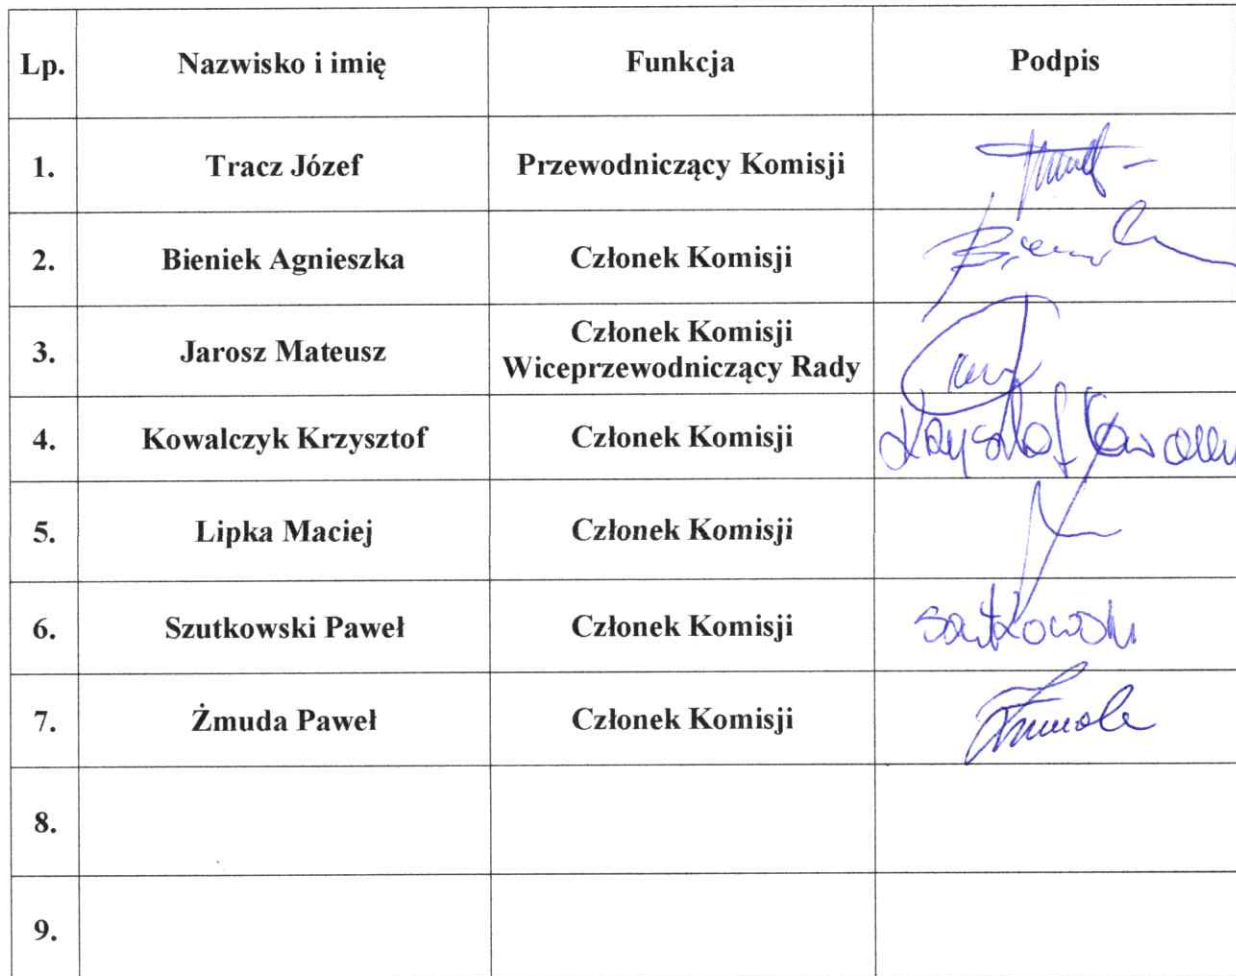 Lp. Nazwisko i imię Funkcja Podpis
1. Tracz Józef Przewodniczący Komisji
2. Bieniek Agnieszka Członek Komisji
3. Jarosz Mateusz Członek Komisji
Wiceprzewodniczący Rady
4. Kowalczyk Krzysztof Członek Komisji Krzysztof
5. Lipka Maciej Członek Komisji
6. Szutkowski Paweł Członek Komisji Szutkowski
7. Żmuda Paweł Członek Komisji Żmuda
8.
9.